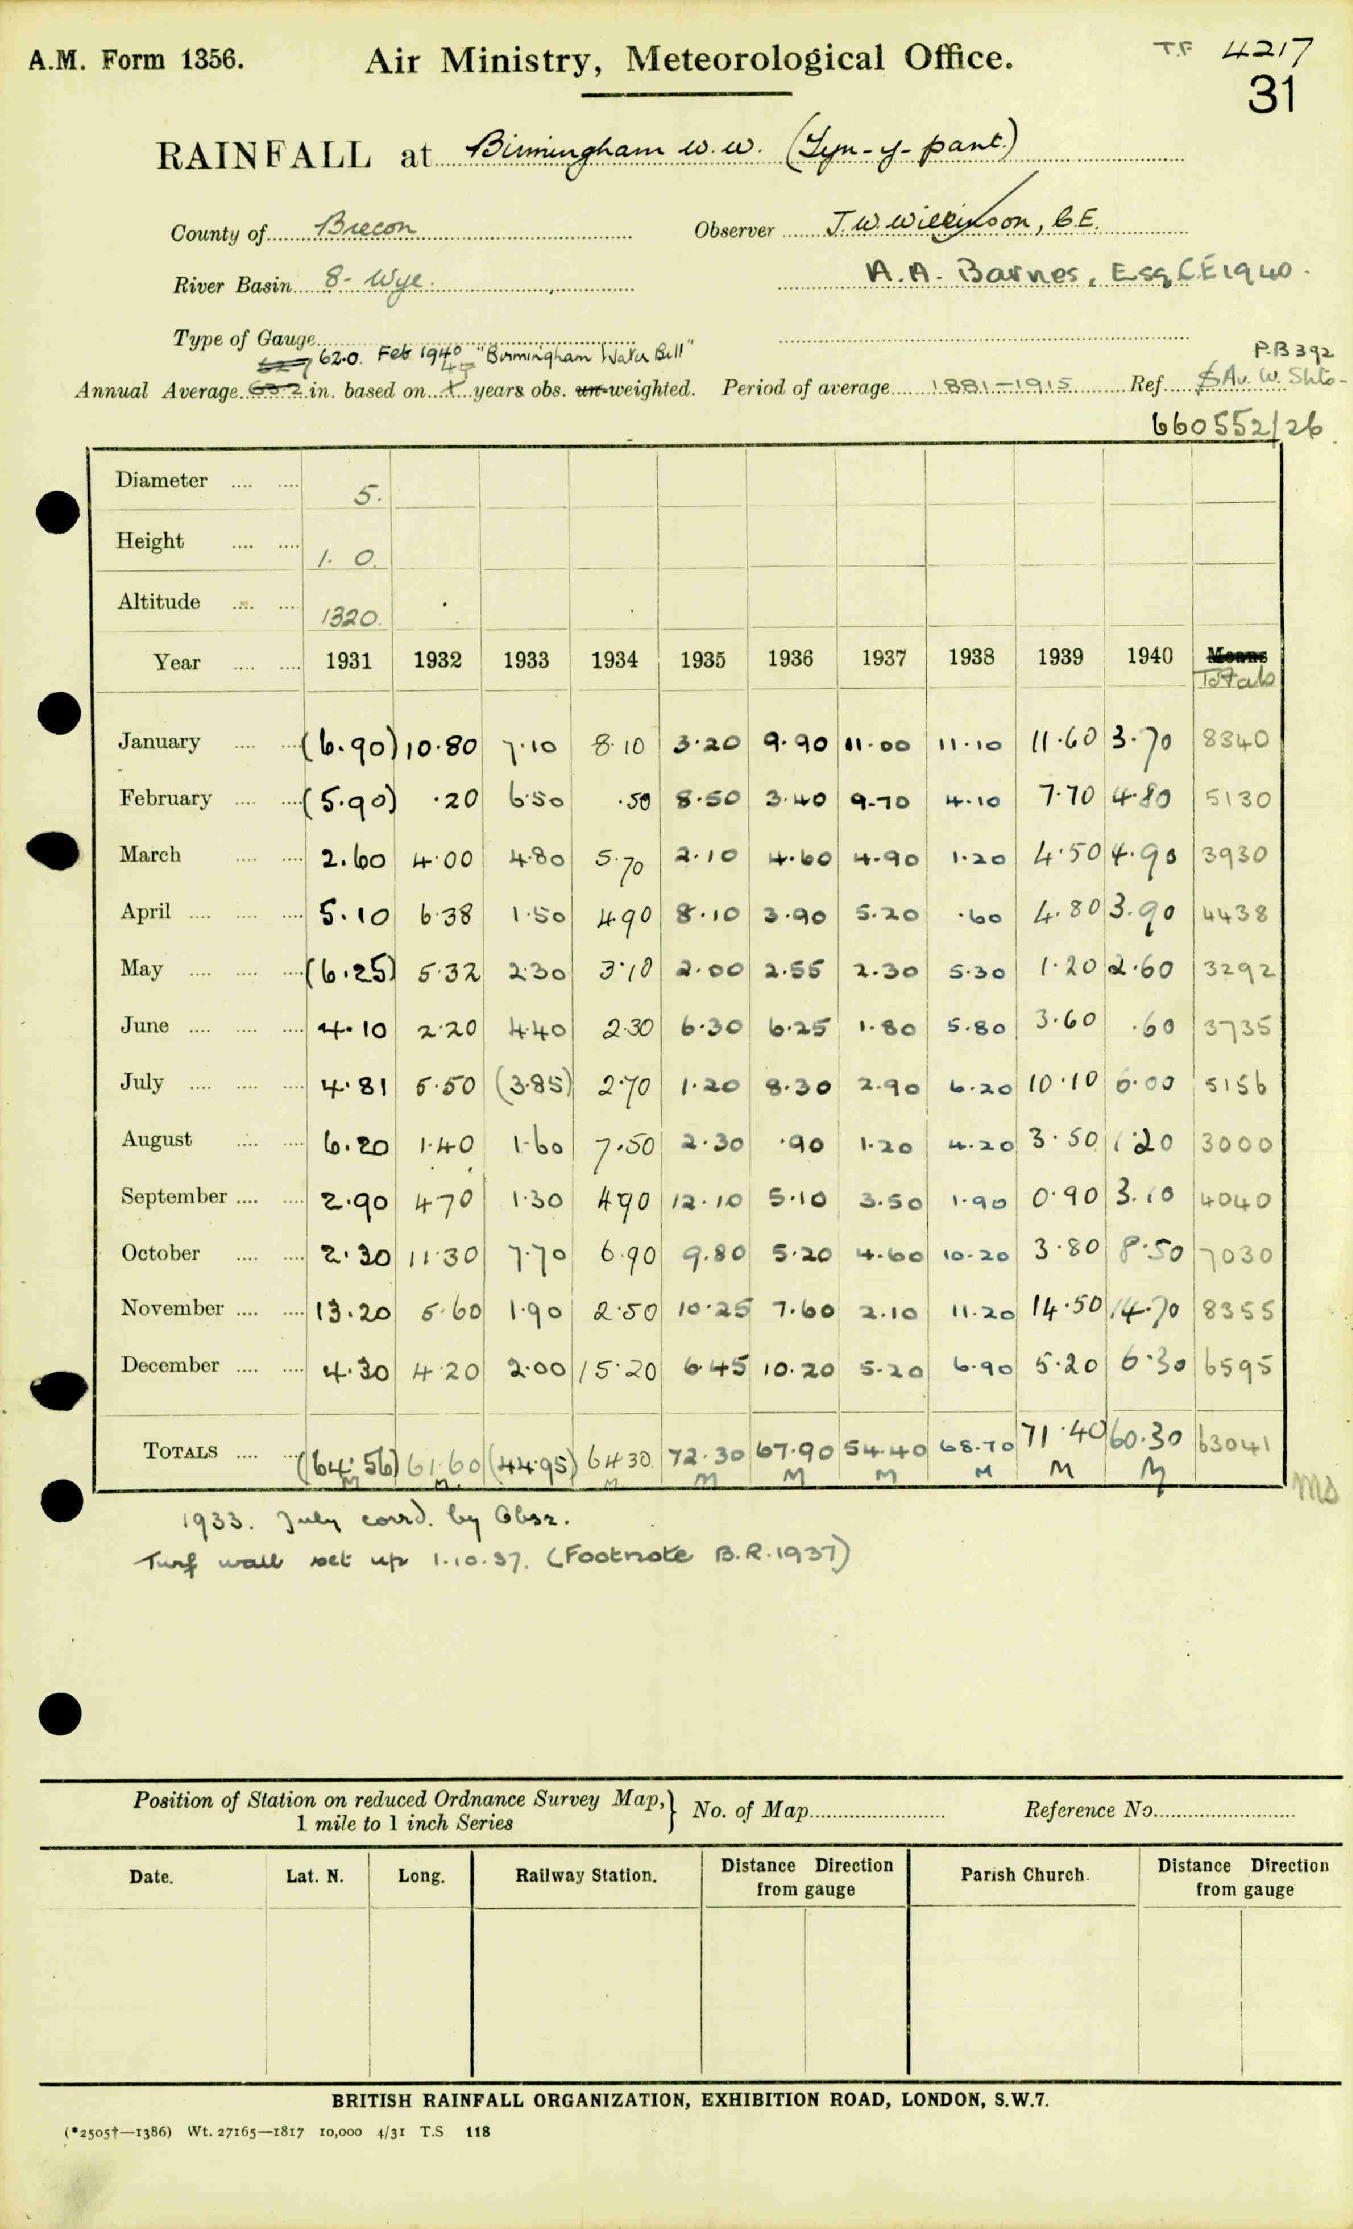 A.M. Form 1356. Air Ministry, Meteorological Office. T.F 4217
31
RAINFALL at Birmingham W.W. (Tyn-y-pant)
County of Brecon Observer J.W. Wilkinson, C.E.
River Basin 8- Wye. A.A. Barnes, Esq C.E 1940.
Type of Gauge
620. Feb 1940 "Birmingham Water Bill" P.B 392
Annual Average in. based on years obs. un-weighted. Period of average 1881-1915 Ref. Av. W. Shts-
660552/26
Diameter 5.
Height 1. 0.
Altitude 1320.
Year 1931 1932 1933 1934 1935 1936 1937 1938 1939 1940 Means
Totals
January (6.90) 10.80 7.10 8.10 3.20 9.90 11.00 11.10 11.60 3.70 8340
February (5.90) .20 6.50 .50 8.50 3.40 9.70 4.10 7.70 4.80 5130
March 2.60 4.00 4.80 5.70 2.10 4.60 4.90 1.20 4.50 4.90 3930
April 5.10 6.38 1.50 4.90 8.10 3.90 5.20 .60 4.80 3.90 4438
May (6.25) 5.32 2.30 3.10 2.00 2.55 2.30 5.30 1.20 2.60 3292
June 4.10 2.20 4.40 2.30 6.30 6.25 1.80 5.80 3.60 .60 3735
July 4.81 5.50 (3.85) 2.70 1.20 8.30 2.90 6.20 10.10 6.00 5156
August 6.20 1.40 1.60 7.50 2.30 .90 1.20 4.20 3.50 1.20 3000
September 2.90 4.70 1.30 4.90 12.10 5.10 3.50 1.90 0.90 3.10 4040
October 2.30 11.30 7.70 6.90 9.80 5.20 4.60 10.20 3.80 8.50 7030
November 13.20 5.60 1.90 2.50 10.25 7.60 2.10 11.20 14.50 14.70 8355
December 4.30 4.20 2.00 15.20 6.45 10.20 5.20 6.90 5.20 6.30 6595
TOTALS (64.56) 61.60 (44.95) 64.30 72.30 67.90 54.40 68.70 71.40 60.30 63041
M M M M M M M M M Ms
1933. July corrd. by Obsr.
Turf wall set up 1.10.37. (Footnote B.R.1937)
Position of Station on reduced Ordnance Survey Map, 1 mile to 1 inch Series } No. of Map Reference No.
Date. Lat. N. Long. Railway Station. Distance Direction from gauge Parish Church. Distance Direction from gauge
BRITISH RAINFALL ORGANIZATION, EXHIBITION ROAD, LONDON, S.W.7.
(*2505†—1386) Wt. 27165—1817 10,000 4/31 T.S 118